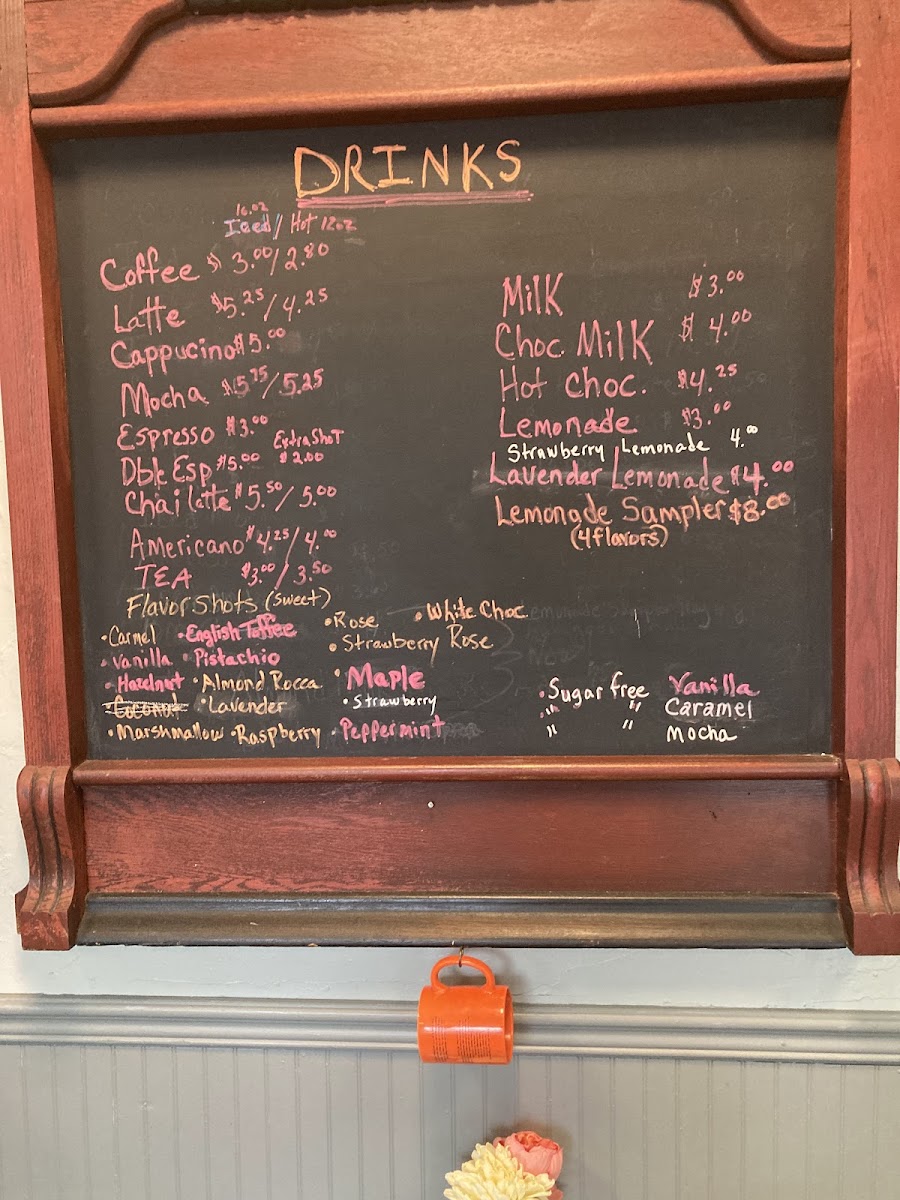 DRINKS
16oz
Iced / Hot 12oz
Coffee $3.00/2.80
Latte $5.25/4.25
Cappucino $5.00
Mocha $5.75/5.25
Espresso $3.00
Extra Shot
Dble Esp $5.00 $2.00
Chai latte $5.50/5.00
Americano $4.25/4.00
TEA $3.00/3.50
Milk $3.00
Choc. Milk $4.00
Hot Choc. $4.25
Lemonade $3.00
Strawberry Lemonade 4.00
Lavender Lemonade $4.00
Lemonade Sampler $8.00
(4 flavors)
Flavor Shots (Sweet)
•Carmel •English Toffee •Rose •White Choc
•Vanilla •Pistachio •Strawberry Rose
•Hazelnut •Almond Rocca •Maple
Coconut •Lavender •Strawberry
•Marshmallow •Raspberry •Peppermint
•Sugar free Vanilla
" " Caramel
" " Mocha